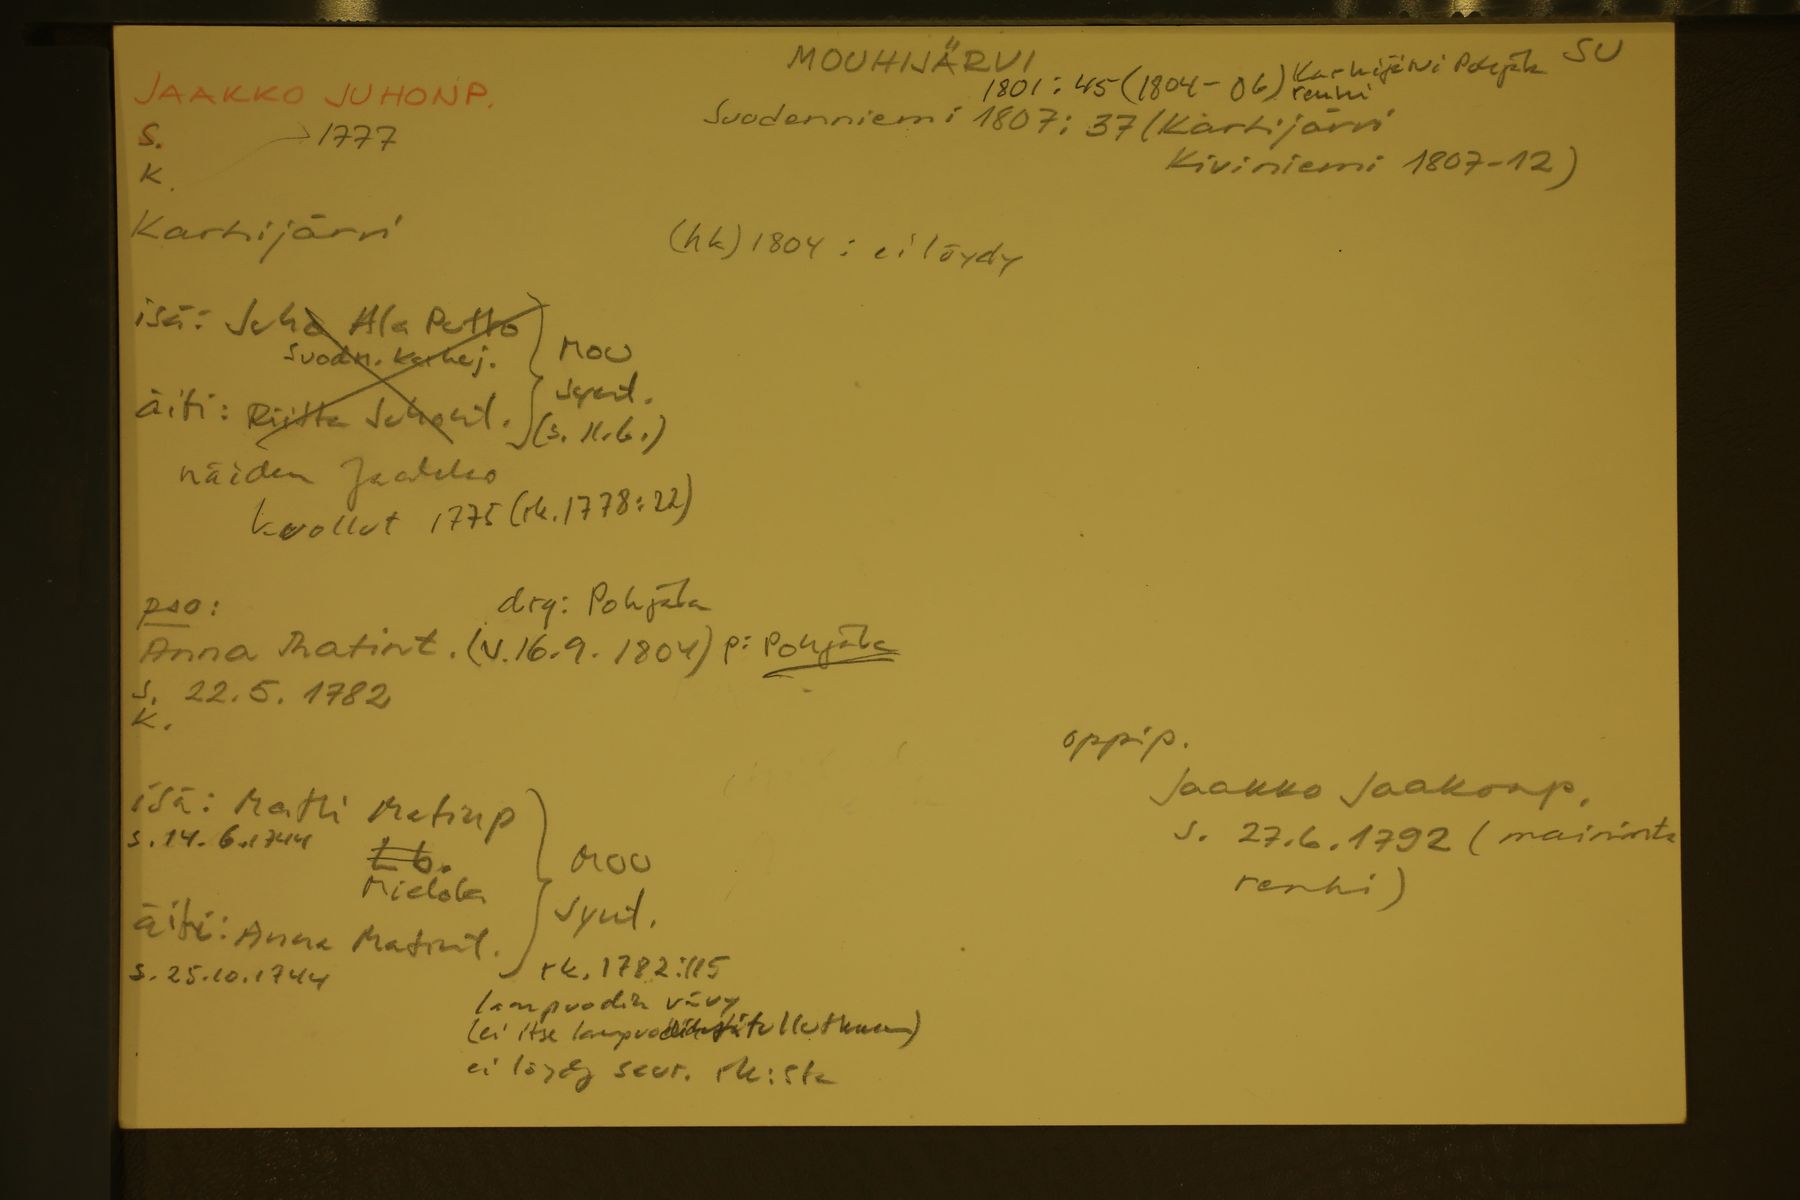 MOUHIJÄRVI
SU
JAAKKO JUHONP.
1801: 45 (1804-06) Karhijärvi Pohjala
renki
Suodenniemi 1807: 37 (Karhijärvi
Kiviniemi 1807-12)
S. 1777
K.
Karhijärvi
(hk) 1804: ei löydy
isä: Juho Ala Putto
Suodn. Karhej.
Mou
synt.
äiti: Riitta Juhont.
(s. 11.6.)
näiden Jaakko
kuollut 1775 (rk. 1778:22)
pso:
drg: Pohjala
Anna Matint. (v. 16.9. 1804) p: Pohjala
S. 22.5. 1782
K.
oppip.
Jaakko Jaakonp.
s. 27.6.1792 (maininta
renki)
isä: Matti Matinp
s. 14.6.1744
Mou
Mielola
synt.
äiti: Anna Matint.
s. 25.10.1744
rk. 1782:115
lampuodin vävy
(ei itse lampuodiksi
ei löydy seur. rk:sta